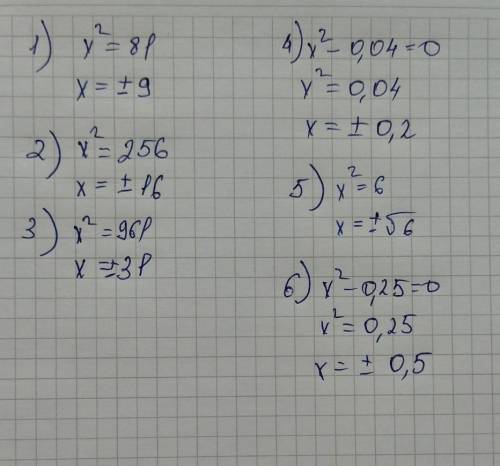 1) x² = 81
x = ±9
2) x² = 256
x = ±16
3) x² = 961
x = ±31
4) x² - 0,04 = 0
x² = 0,04
x = ± 0,2
5) x² = 6
x = ±√6
6) x² - 0,25 = 0
x² = 0,25
x = ± 0,5